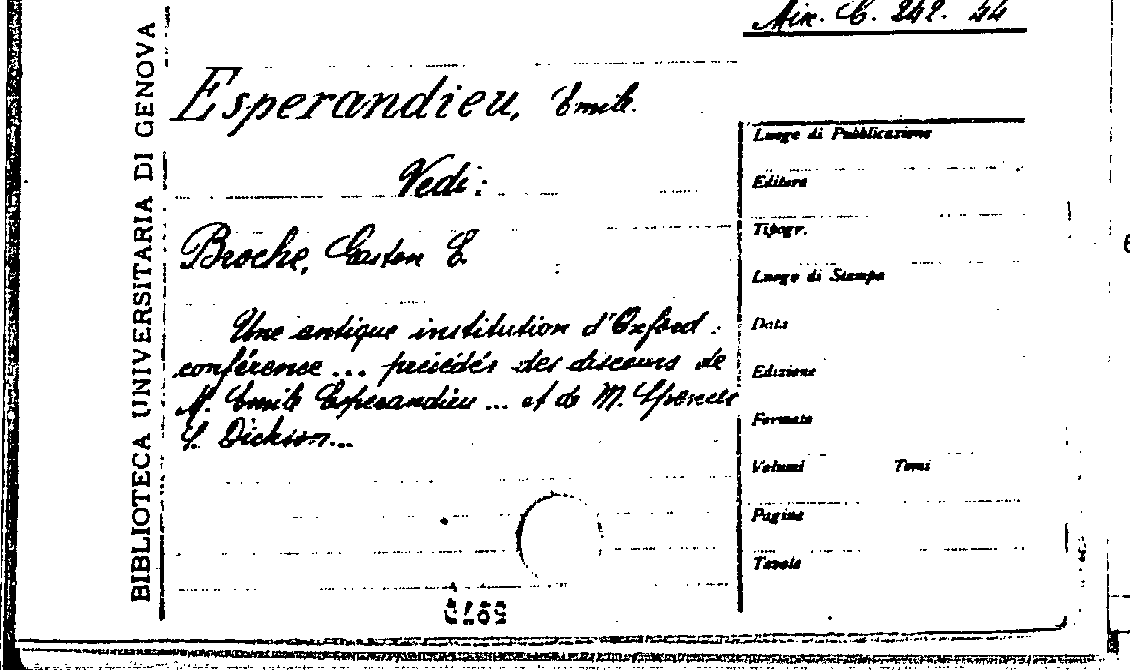 Min. C. 242. 44
BIBLIOTECA UNIVERSITARIA DI GENOVA
Esperandieu, Emile.
Vedi:
Broche, Gaston E.
Une antique institution d'Oxford:
conférence ... précédés des discours de
M. Emile Esperandieu ... et de M. Spencer
S. Dickson...
Luogo di Pubblicazione
Editore
Tipogr.
Luogo di Stampa
Data
Edizione
Formato
Volumi Tomi
Pagine
Tavole